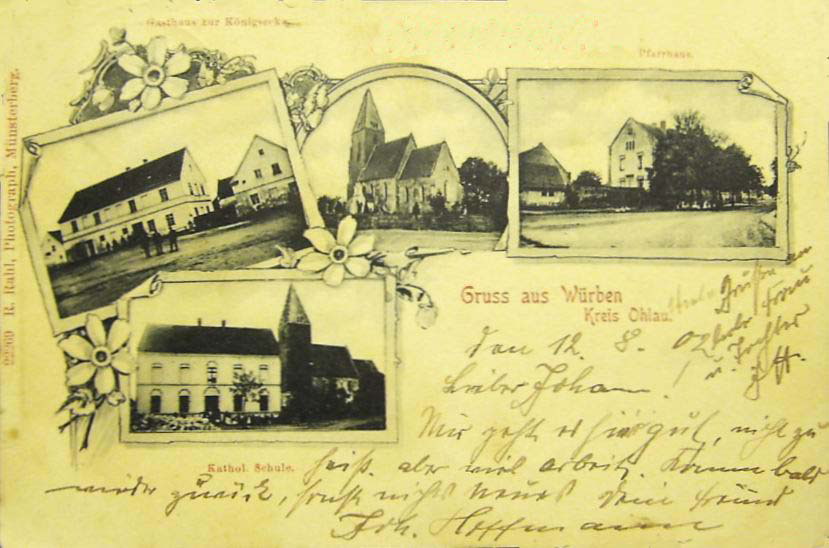 Gasthaus zur Königsecke.
Pfarrhaus.
22269 R. Rahl, Photograph, Münsterberg.
Gruss aus Würben
Kreis Ohlau.
Grüße an
deine Frau
u. Tochter
J. H.
den 12. 8. 02
Lieber Johann!
Mir geht es hier gut, nicht zu
heiß. aber viel arbeit. Komm bald
wieder zurück, sonst nichts neues dein freund
Joh. Hoffmann
Kathol. Schule.